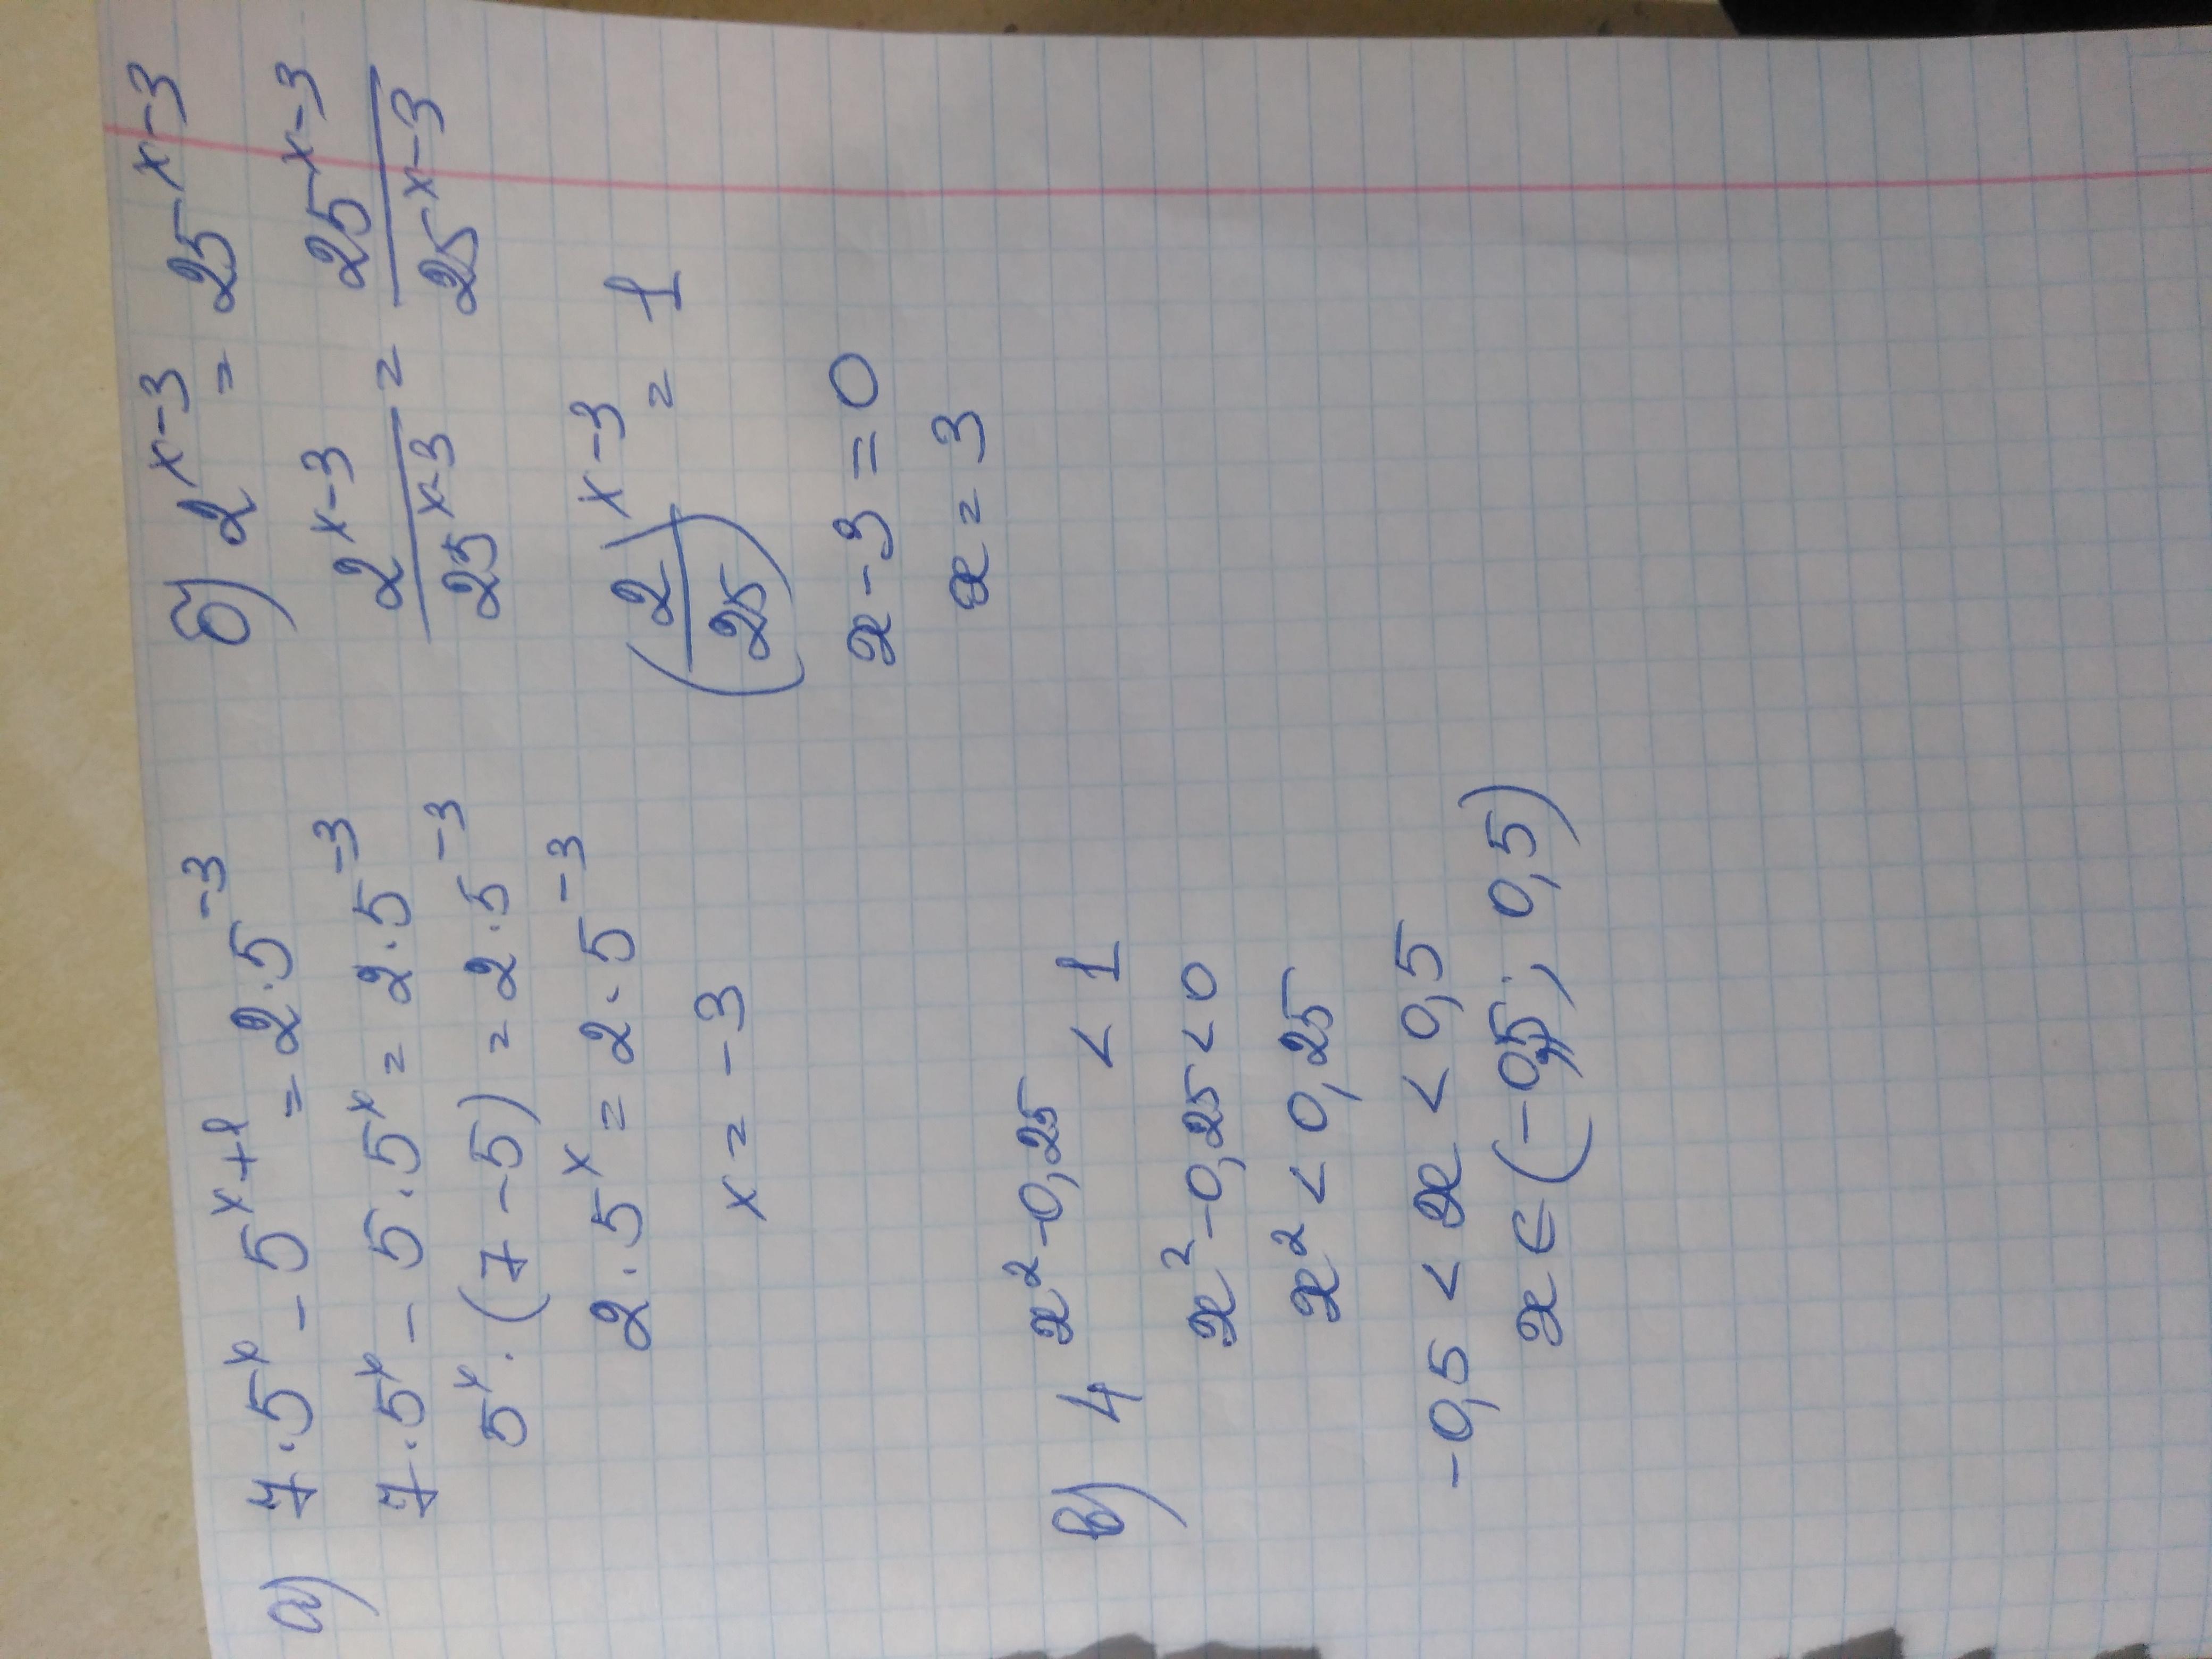 а) 7·5ˣ - 5ˣ⁺¹ = 2·5⁻³
7·5ˣ - 5·5ˣ = 2·5⁻³
5ˣ·(7-5) = 2·5⁻³
2·5ˣ = 2·5⁻³
x = -3
б) 2ˣ⁻³ = 25ˣ⁻³
2ˣ⁻³/25ˣ⁻³ = 25ˣ⁻³/25ˣ⁻³
(2/25)ˣ⁻³ = 1
x - 3 = 0
x = 3
в) 4^(x²-0,25) < 1
x² - 0,25 < 0
x² < 0,25
-0,5 < x < 0,5
x ∈ (-0,5; 0,5)